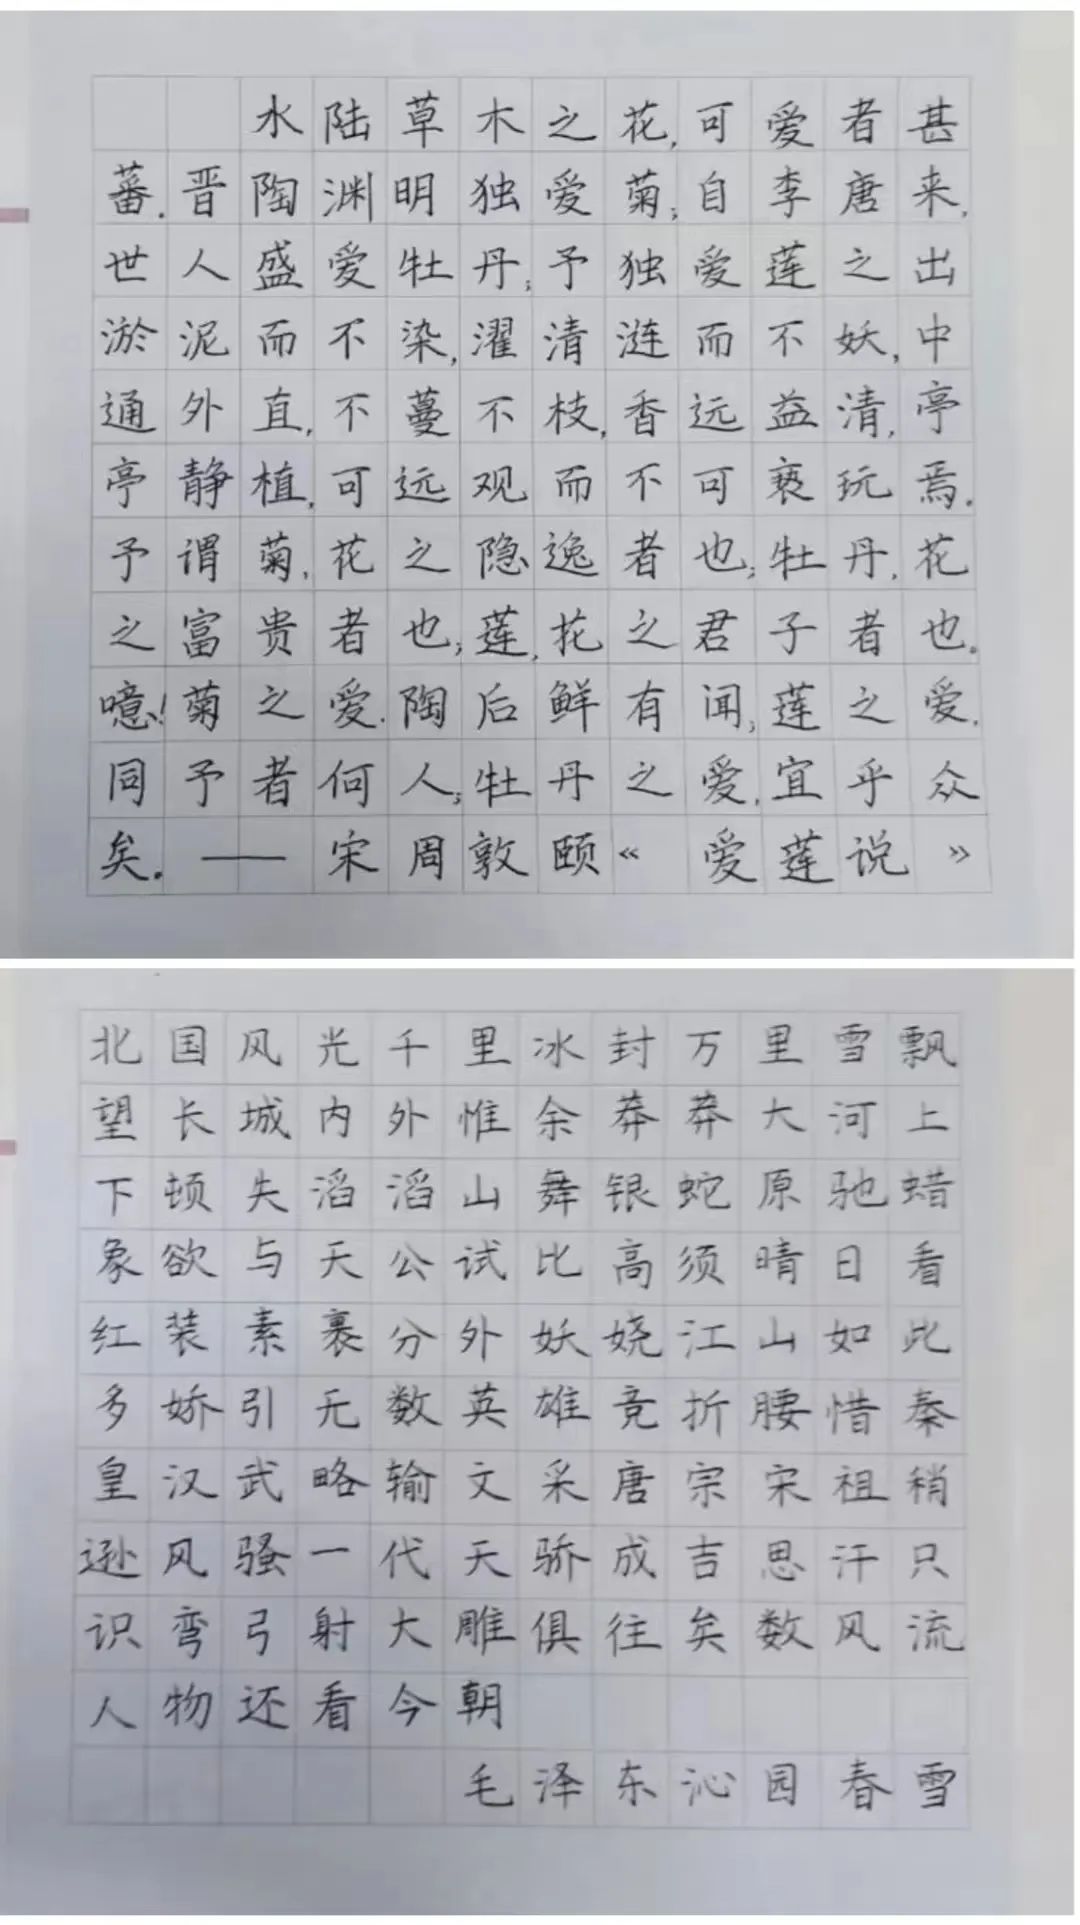 水陆草木之花,可爱者甚
蕃.晋陶渊明独爱菊;自李唐来,
世人盛爱牡丹;予独爱莲之出
淤泥而不染,濯清涟而不妖,中
通外直,不蔓不枝,香远益清,亭
亭静植,可远观而不可亵玩焉.
予谓菊,花之隐逸者也;牡丹,花
之富贵者也;莲,花之君子者也.
噫!菊之爱.陶后鲜有闻;莲之爱,
同予者何人;牡丹之爱,宜乎众
矣.——宋周敦颐《爱莲说》
北国风光千里冰封万里雪飘
望长城内外惟余莽莽大河上
下顿失滔滔山舞银蛇原驰蜡
象欲与天公试比高须晴日看
红装素裹分外妖娆江山如此
多娇引无数英雄竞折腰惜秦
皇汉武略输文采唐宗宋祖稍
逊风骚一代天骄成吉思汗只
识弯弓射大雕俱往矣数风流
人物还看今朝
毛泽东沁园春雪